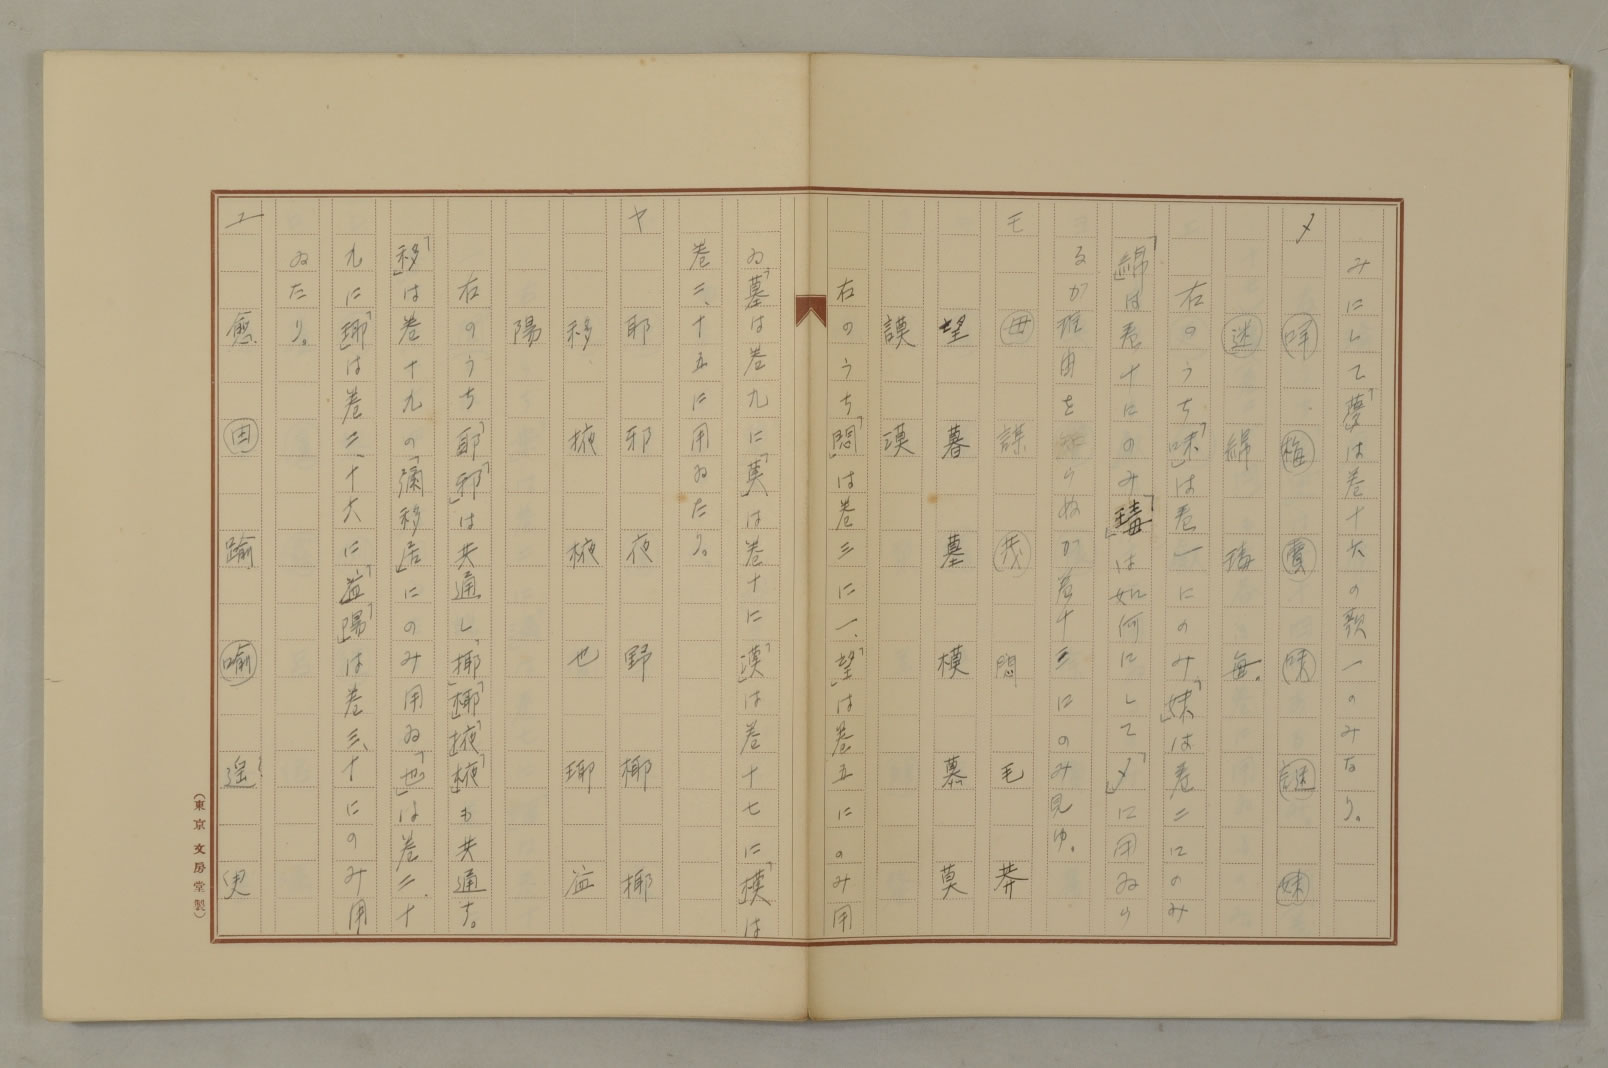 みにして「蘷」は卷十六の歌一のみなり。
メ 咩 梅 賣 味 謎 妹
迷 綿 瑇 毎。
右のうち「味」は卷一にのみ「妹」は卷二にのみ
「綿」は卷十にのみ「瑇」は如何にして「メ」に用ゐら
るか理由を知らぬが卷十三にのみ見ゆ。
モ 母 謀 茂 悶 毛 莽
望 暮 墓 模 慕 莫
謨 漠
右のうち「悶」は卷三に一、「望」は卷五にのみ用
ゐ「墓」は卷九に「莫」は卷十に「漠」は卷十七に「模」は
卷二、十五に用ゐたり。
ヤ 耶 邪 夜 野 椰 揶
移 掖 棭 也 瑘 益
陽
右のうち「耶」「邪」は共通し、「揶」「椰」「掖」「棭」も共通す。
「移」は卷十九の「彌移居」にのみ用ゐ「也」は卷二、十
九に「瑘」は卷二、十六に「益」「陽」は卷三、十にのみ用
ゐたり。
ユ 愈 由 踰 喩 遥 臾
(東京 文房堂製)